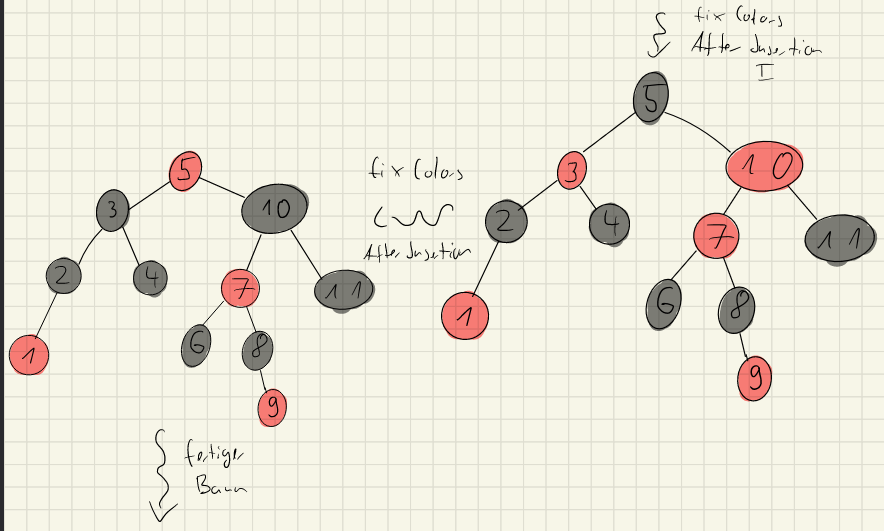 fix Colors
After Insertion
I
5
3
10
2
4
7
11
1
6
8
9
fix Colors
After Insertion
5
3
10
2
4
7
11
1
6
8
9
fertiger
Baum